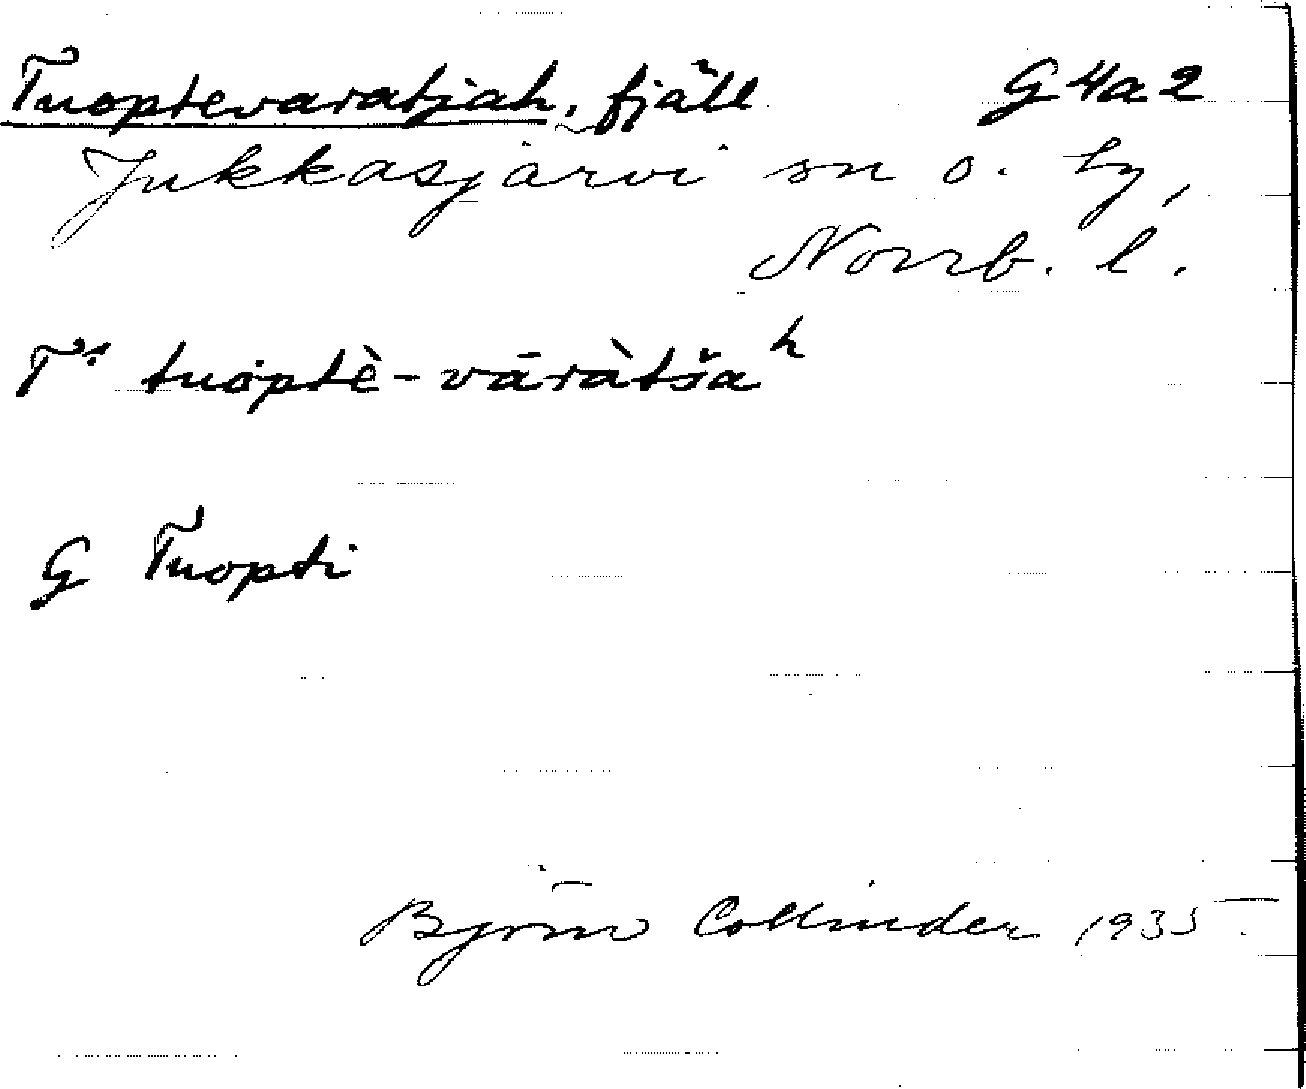 Tuoptevaratjah, fjäll G4a2
Jukkasjärvi sn o. by,
Norrb. l.
tuoptè-vāràtša^h
G Tuopti
Björn Collinder 1935